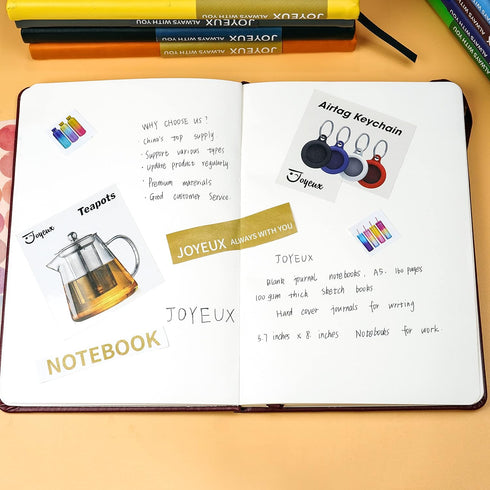 JOYEUX ALWAYS WITH YOU
JOYEUX ALWAYS WITH YOU
JOYEUX ALWAYS WITH YOU
JOYEUX ALWAYS WITH YOU
JOYEUX
WHY CHOOSE US?
China's top supply
· Support various types
· Update product regularly
· Premium materials
· Good customer service.
Joyeux
Teapots
JOYEUX ALWAYS WITH YOU
JOYEUX
NOTEBOOK
Airtag Keychain
Joyeux
JOYEUX
Blank journal notebooks, A5. 160 pages
100 gsm thick sketch books
Hard cover journals for writing
5.7 inches x 8. inches Notebooks for work.